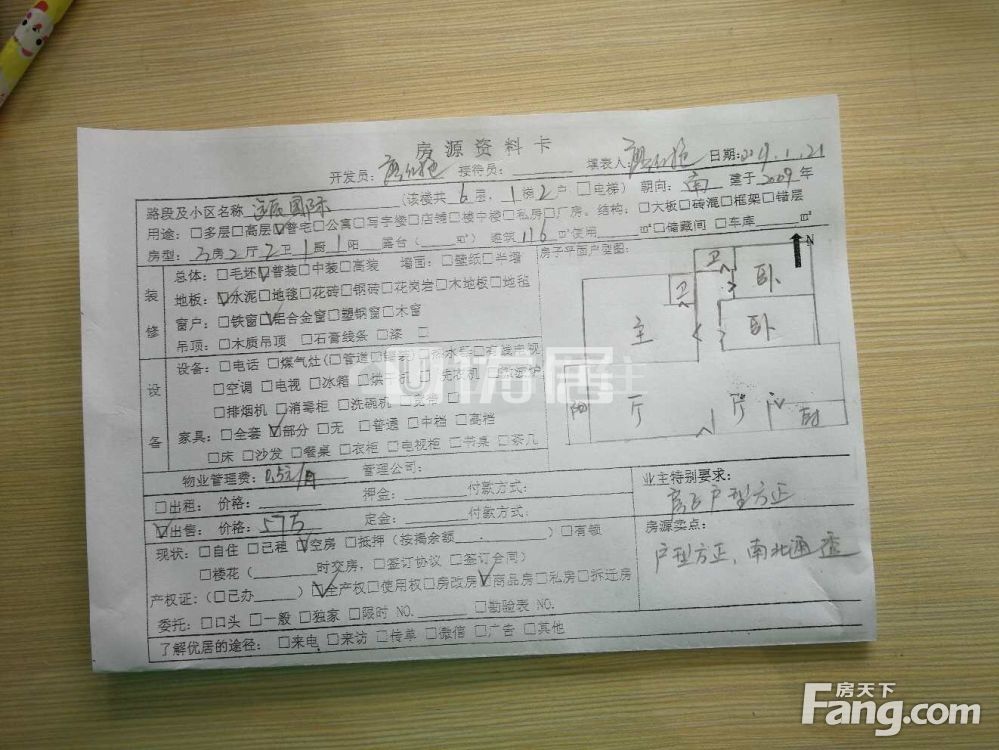 房源资料卡
开发员: 接待员: 填表人: 日期:2019.1.21
路段及小区名称 国际 (该楼共 6 层, 1 梯 2 户 □电梯) 朝向: 南 建于 2009 年
用途: □多层 □高层 ☑普宅 □公寓 □写字楼 □店铺 □楼中楼 □私房 □厂房。结构: □大板 □砖混 □框架 □错层
房型: 3 房 2 厅 2 卫 1 厨 1 阳 露台 ( ㎡) 建筑 116 ㎡ 使用 ㎡ □储藏间 □车库 ㎡
装修
总体: □毛坯 ☑普装 □中装 □高装 墙面: □壁纸 □半墙
地板: ☑水泥 □地毯 □花砖 □钢砖 □花岗岩 □木地板 □地毯
窗户: □铁窗 ☑铝合金窗 □塑钢窗 □木窗
吊顶: □木质吊顶 □石膏线条 □漆 □
设备
设备: □电话 □煤气灶 (□管道 有线电视
□空调 □电视 □冰箱 洗衣机
□排烟机 □消毒柜 □洗碗机 □
家具: □全套 ☑部分 □无 □普通 □中档 □高档
□床 □沙发 □餐桌 □衣柜 □电视柜 □书桌 □茶几
房子平面户型图:
N
卫 卫 卧
主 卧
阳 厅 厅 厨
物业管理费: 0.5元/月 管理公司:
□出租: 价格: 押金: 付款方式:
☑出售: 价格: 57万 定金: 付款方式:
现状: □自住 □已租 ☑空房 □抵押 (按揭余额 ) □有锁
□楼花 ( 时交房, □签订协议 □签订合同)
产权证: (□已办 ) ☑全产权 □使用权 □房改房 ☑商品房 □私房 □拆迁房
委托: □口头 □一般 □独家 □限时 NO. □勘验表 NO.
了解优居的途径: □来电 □来访 □传单 □微信 □广告 □其他
业主特别要求:
户型方正
房源卖点:
户型方正、南北通透
优居
房天下
Fang.com